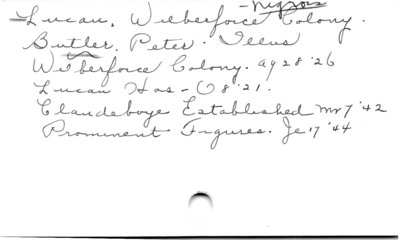 - Negroes
Lucan, Wilberforce Colony.
Butler, Peter. Illus
Wilberforce Colony. Ag 28 '26
Lucan Has - O 8 '21.
Clandeboye Established Mr 7 '42
Prominent Figures. Je 17 '44